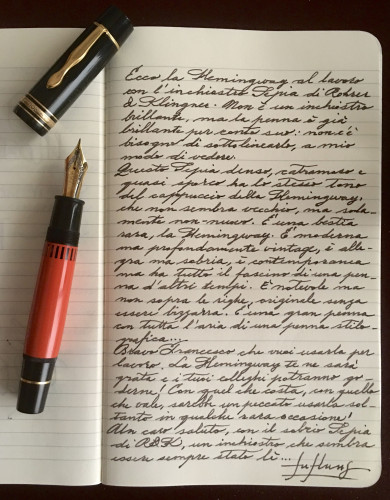 Ecco la Hemingway al lavoro
con l'inchiostro Sepia di Rohrer
& Klingner. Non è un inchiostro
brillante, ma la penna è già
brillante per conto suo: non c'è
bisogno di sottolinearlo, a mio
modo di vedere.
Questo Sepia denso, catramoso e
quasi sporco ha lo stesso tono
del cappuccio della Hemingway,
che non sembra vecchio, ma sola-
mente non-nuovo. È una bestia
rara, la Hemingway. È moderna
ma profondamente vintage, è alle-
gra ma sobria, è contemporanea
ma ha tutto il fascino di una pen-
na d'altri tempi. È notevole ma
non sopra le righe, originale senza
essere bizzarra. È una gran penna
con tutta l'aria di una penna stilo-
grafica...
Bravo Francesco che vuoi usarla per
lavoro. La Hemingway te ne sarà
grata e i tuoi colleghi potranno go-
derne! Con quel che costa, con quello
che vale, sarebbe un peccato usarla sol-
tanto in qualche rara occasione!
Un caro saluto, con il sobrio Sepia
di R&K, un inchiostro che sembra
essere sempre stato lì...